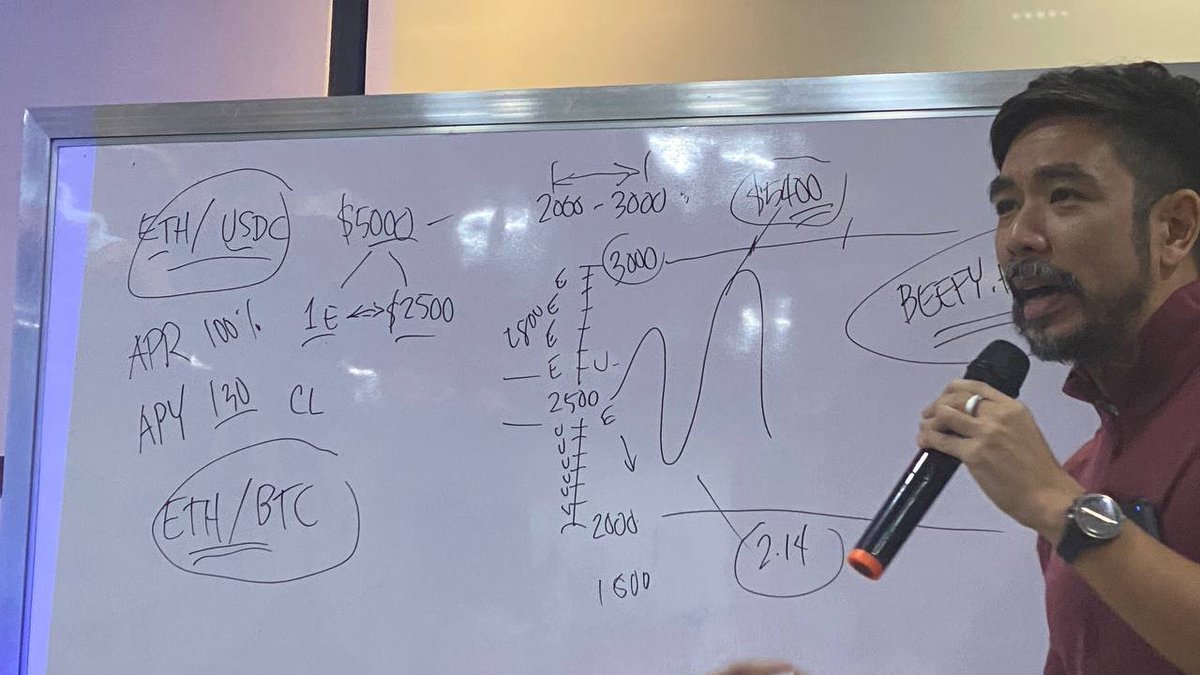 ETH/USDC
$5000 -
1E <=> $2500
APR 100%
APY 130 CL
ETH/BTC
2000 - 3000
$5400
3000
E
E
2800
E
E U-
2500
E
U
U
U
U
U
2000
1600
2.14
BEEFY.